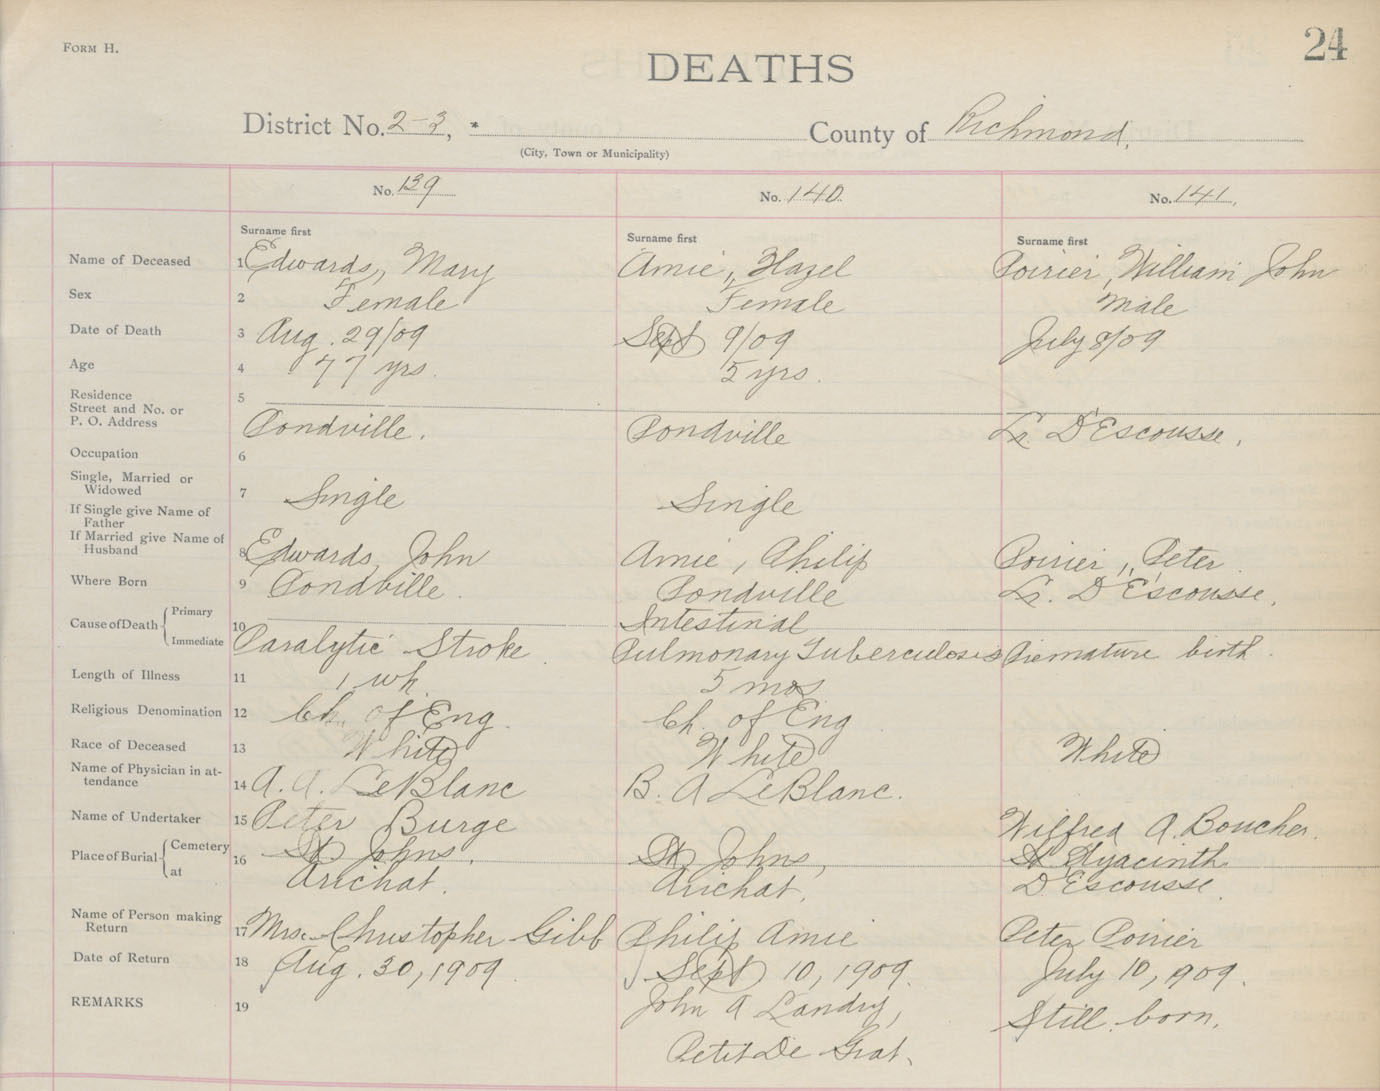 FORM H.
24
DEATHS
District No. 2-3, * County of Richmond.
(City, Town or Municipality)
No. 139 No. 140 No. 141.
Surname first Surname first Surname first
Name of Deceased 1 Edwards, Mary Amie, Hazel Poirier, William John
Sex 2 Female Female Male
Date of Death 3 Aug. 29/09 Sept 9/09 July 8/09
Age 4 77 yrs. 5 yrs.
Residence 5
Street and No. or
P. O. Address Pondville. Pondville Lr D'Escousse.
Occupation 6
Single, Married or
Widowed 7 Single Single
If Single give Name of
Father
If Married give Name of
Husband 8 Edwards, John Amie, Philip Poirier, Peter
Where Born 9 Pondville. Pondville Lr. D'Escousse.
Cause of Death { Primary 10 Intestinal
Immediate Paralytic Stroke Pulmonary Tuberculosis Premature birth.
Length of Illness 11 1 wk. 5 mos
Religious Denomination 12 Ch. of Eng. Ch. of Eng
Race of Deceased 13 White White White
Name of Physician in at-
tendance 14 A. A. LeBlanc B. A LeBlanc.
Name of Undertaker 15 Peter Burge Wilfred A. Boucher.
Place of Burial { Cemetery 16 St Johns, St Johns, St Hyacinth
at Arichat. Arichat. D'Escousse.
Name of Person making
Return 17 Mrs. Christopher Gibb Philip Amie Peter Poirier
Date of Return 18 Aug. 30, 1909. Sept 10, 1909. July 10, 1909.
REMARKS 19 John A Landry, Still born.
Petit De Grat.